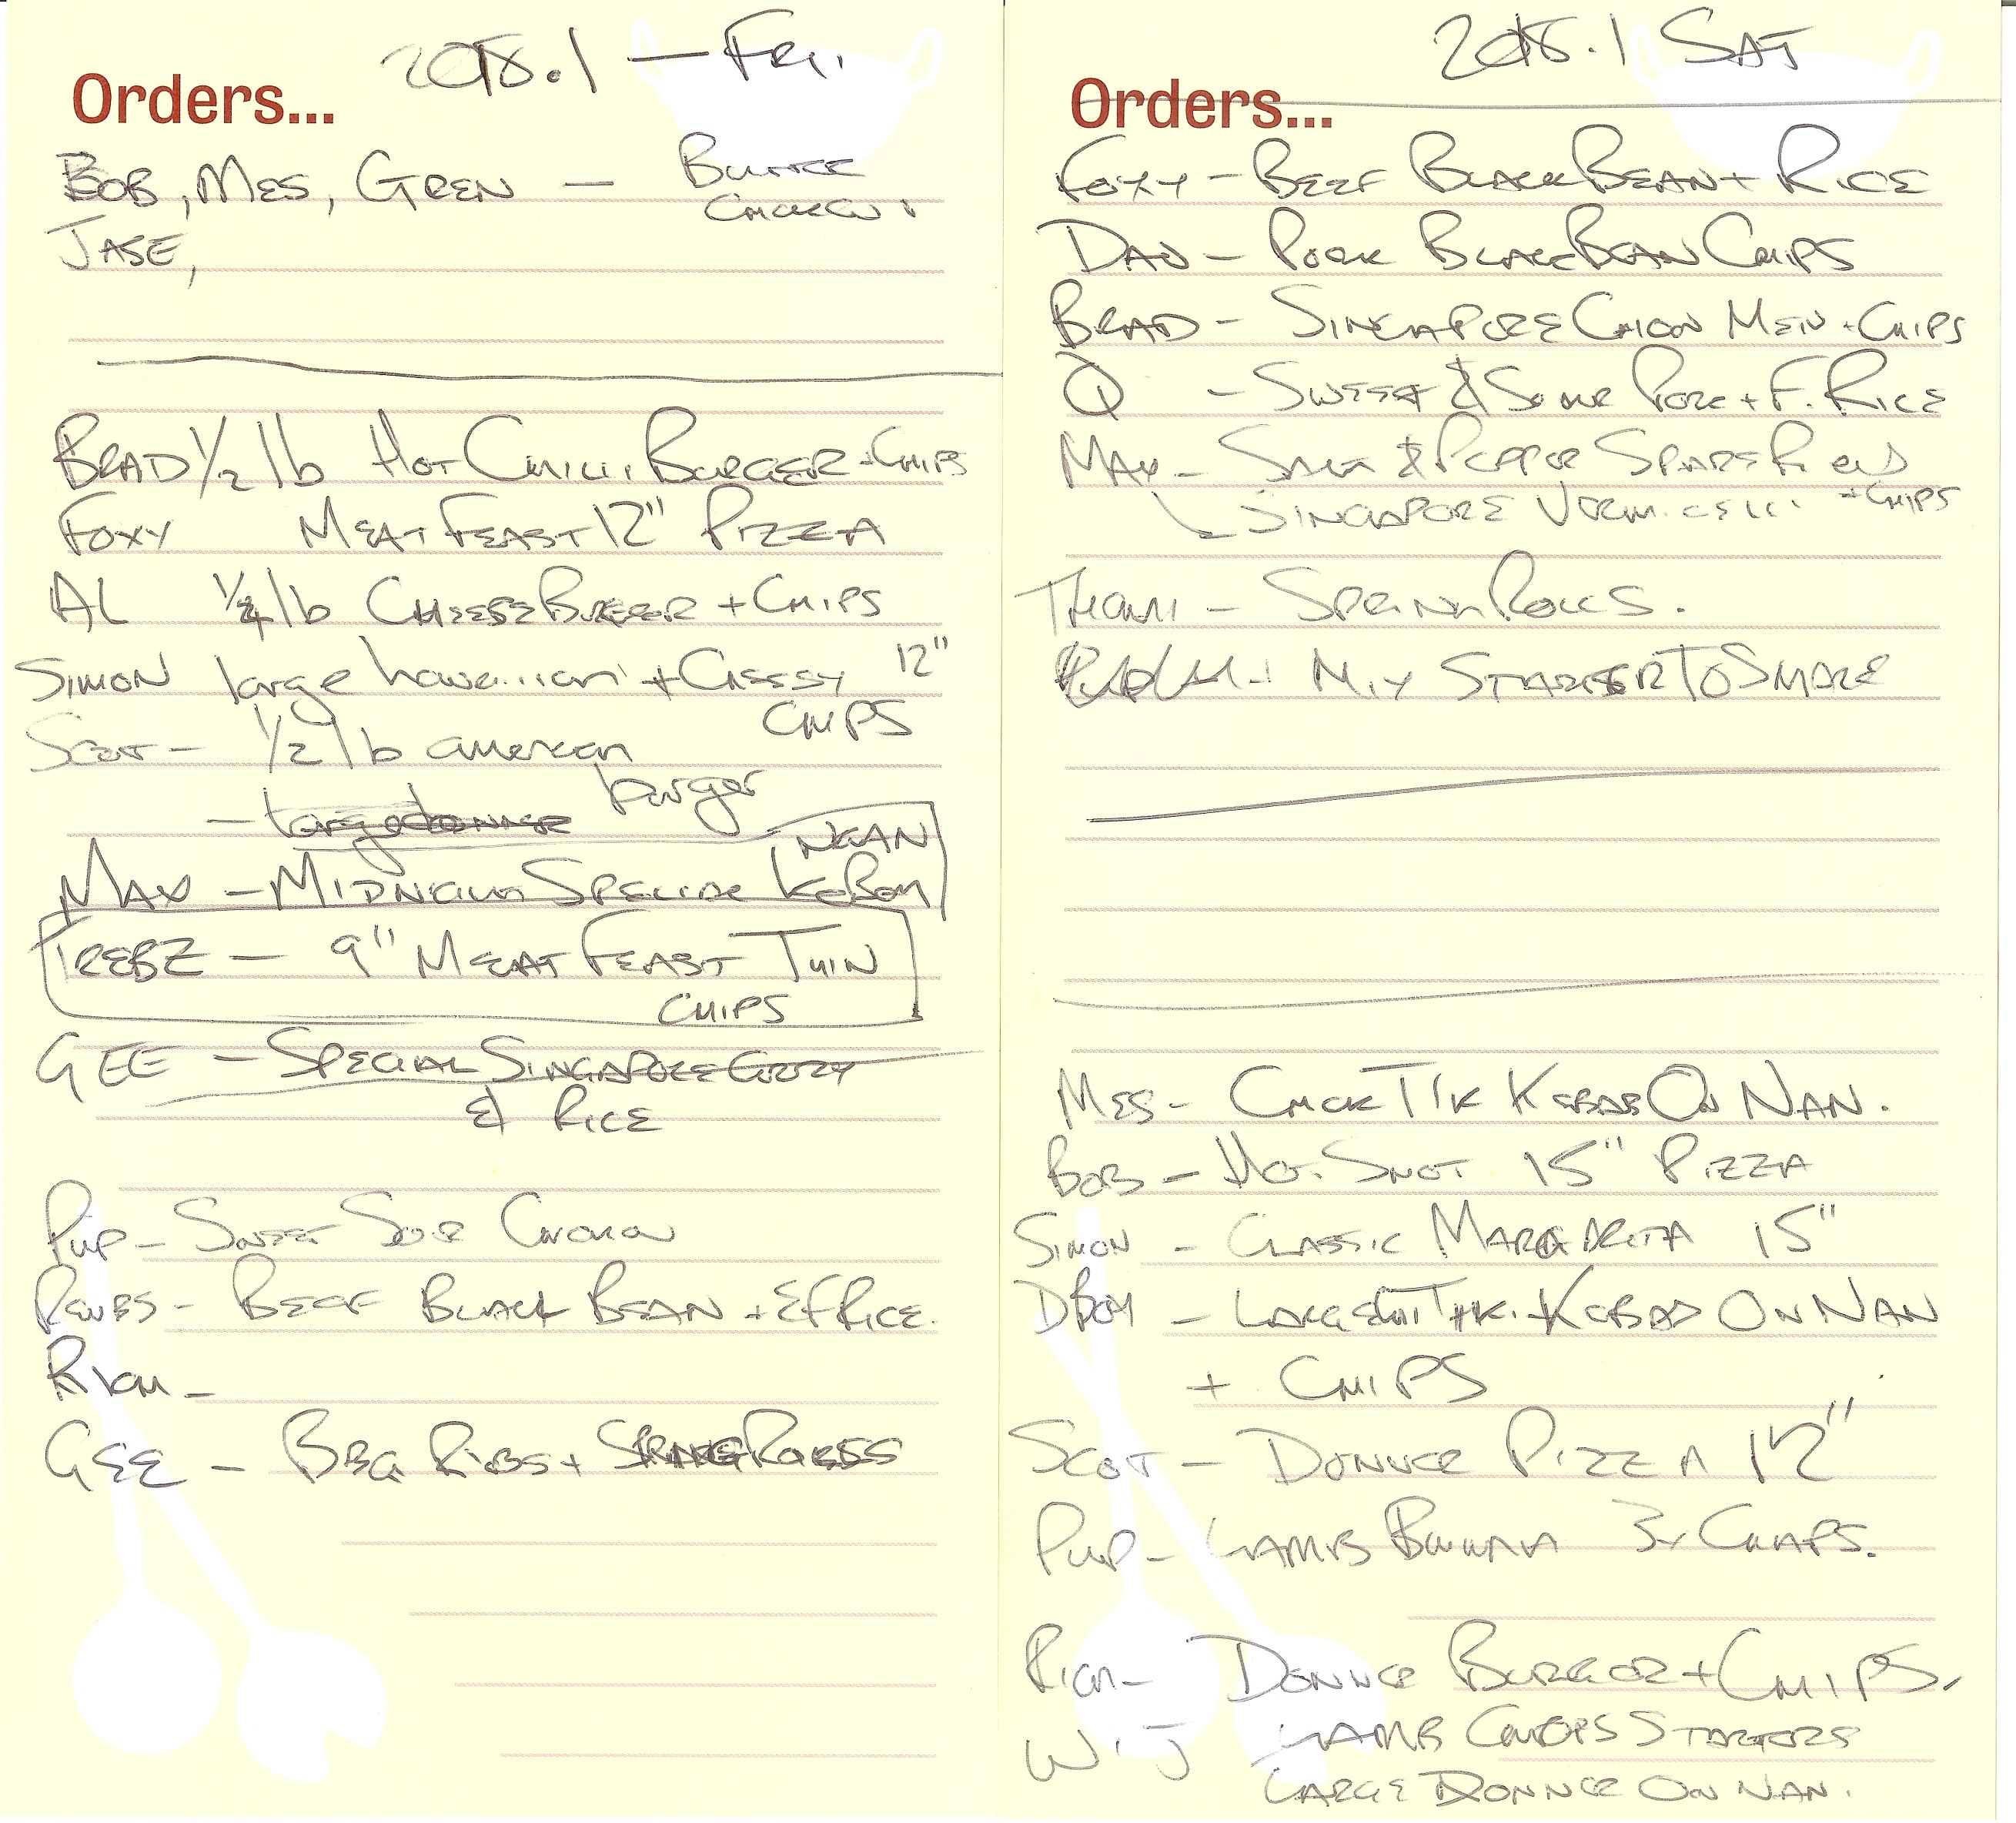 — Fri.
Orders...
BOB, MES, GREN —
JASE,
BRAD 1/2 lb HOT CHILLI BURGER + CHIPS
FOXY MEAT FEAST 12" PIZZA
AL 1/4 lb CHEESE BURGER + CHIPS
SIMON large hawaiian + CHEESY 12"
CHIPS
SCOT - 1/2 lb american
burger
NAAN
MAX - MIDNIGHT SPECIAL KEBAB
TREBZ - 9" MEAT FEAST THIN
CHIPS
GEE - SPECIAL SINGAPORE CURRY
& RICE
PUP - SWEET SOUR CHICKEN
REUBS - BEEF BLACK BEAN + EF RICE.
RICH -
GEE - BBQ RIBS +
SAT
Orders...
FOXY - BEEF BLACK BEAN + RICE
DAN - PORK BLACK BEAN CHIPS
BRAD - SINGAPORE CHOW MEIN + CHIPS
Q - SWEET & SOUR PORK + F. RICE
MAX - SALT & PEPPER SPARE RIBS
SINGAPORE VERMICELLI + CHIPS
- SPRING ROLLS.
MIX STARTER TO SHARE
MES - CHICK T/K KEBAB ON NAN.
BOB - HOT SHOT 15" PIZZA
SIMON - CLASSIC MARGARITA 15"
DBOY - LARGE KEBAB ON NAN
+ CHIPS
SCOT - DONNER PIZZA 12"
PUP - LAMB BHUNA 3x CHAPS.
RICH - DONNER BURGER + CHIPS.
LAMB CHOPS STARTERS
LARGE DONNER ON NAN.